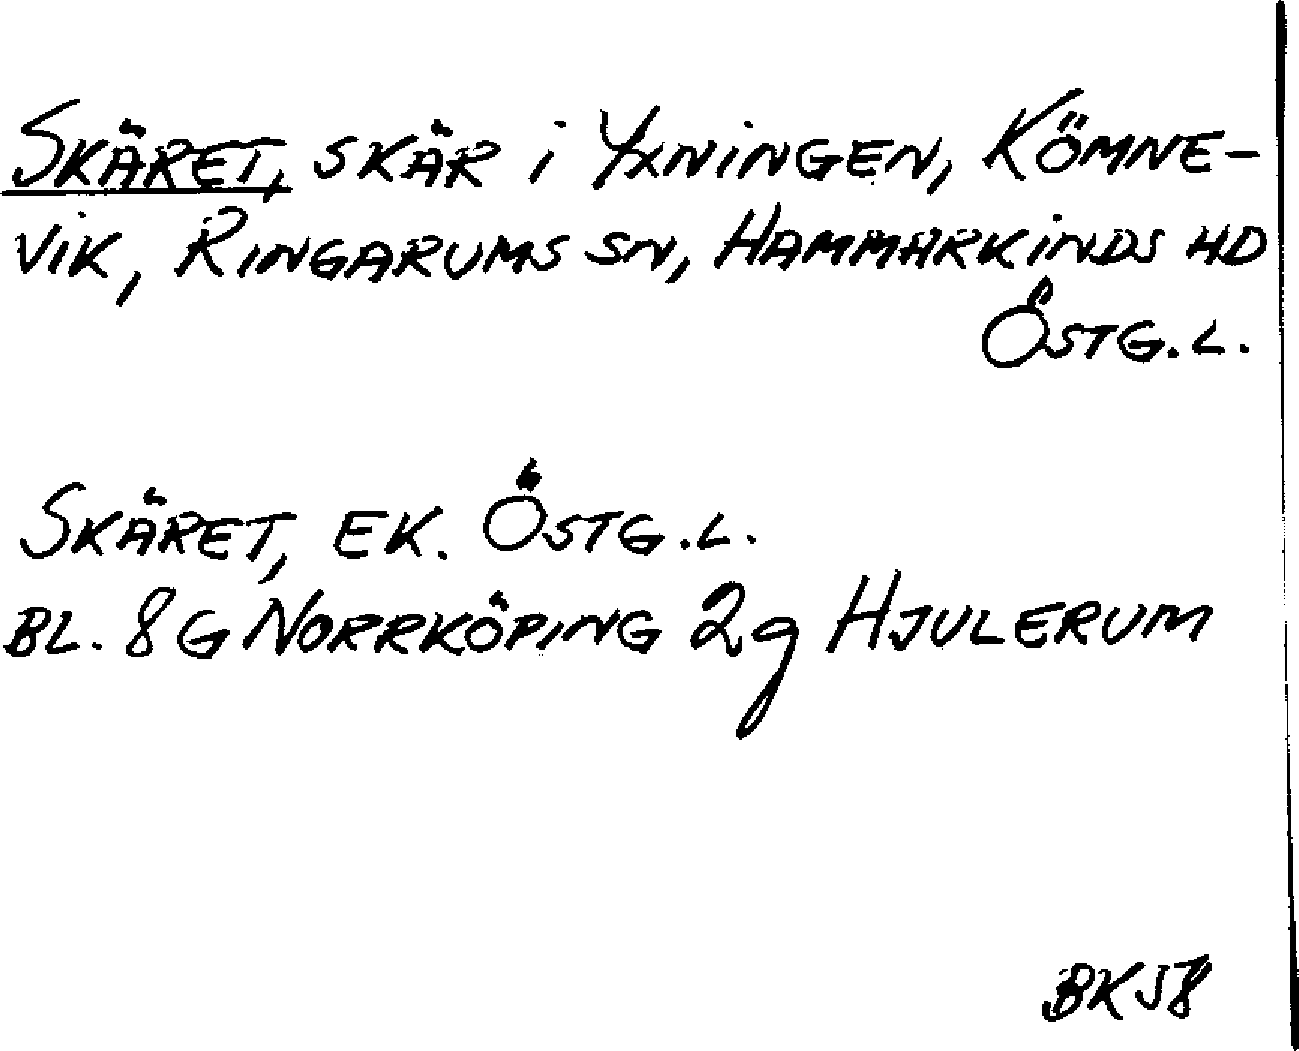 SKÄRET, SKÄR i YXNINGEN, KÖMNE-
VIK, RINGARUMS SN, HAMMARKINDS HD
ÖSTG.L.
SKÄRET, EK. ÖSTG.L.
BL. 8G NORRKÖPING 2g HJULERUM